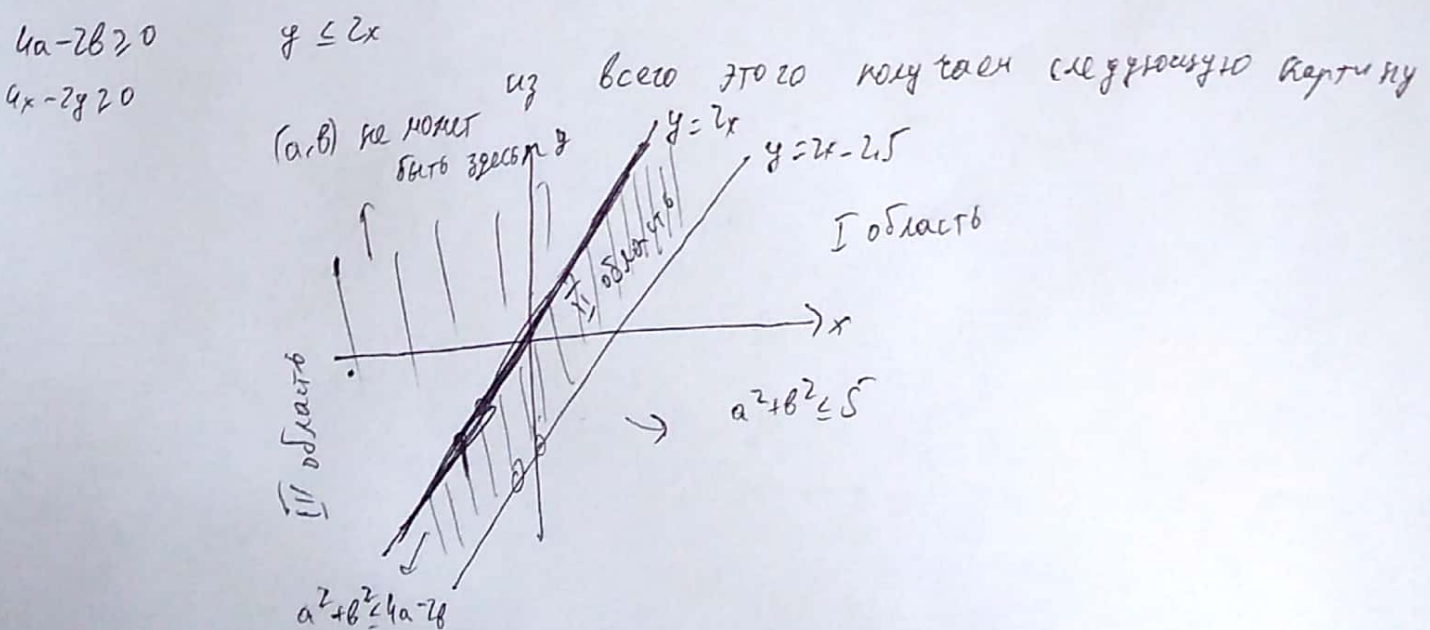 4a-2b≥0
y ≤ 2x
4x-2y≥0
из всего этого получаем следующую картину
(a,b) не может
быть здесь
y
y=2x
y=2x-2,5
I область
II область
x
III область
a²+b²≤5
a²+b²≤4a-2b